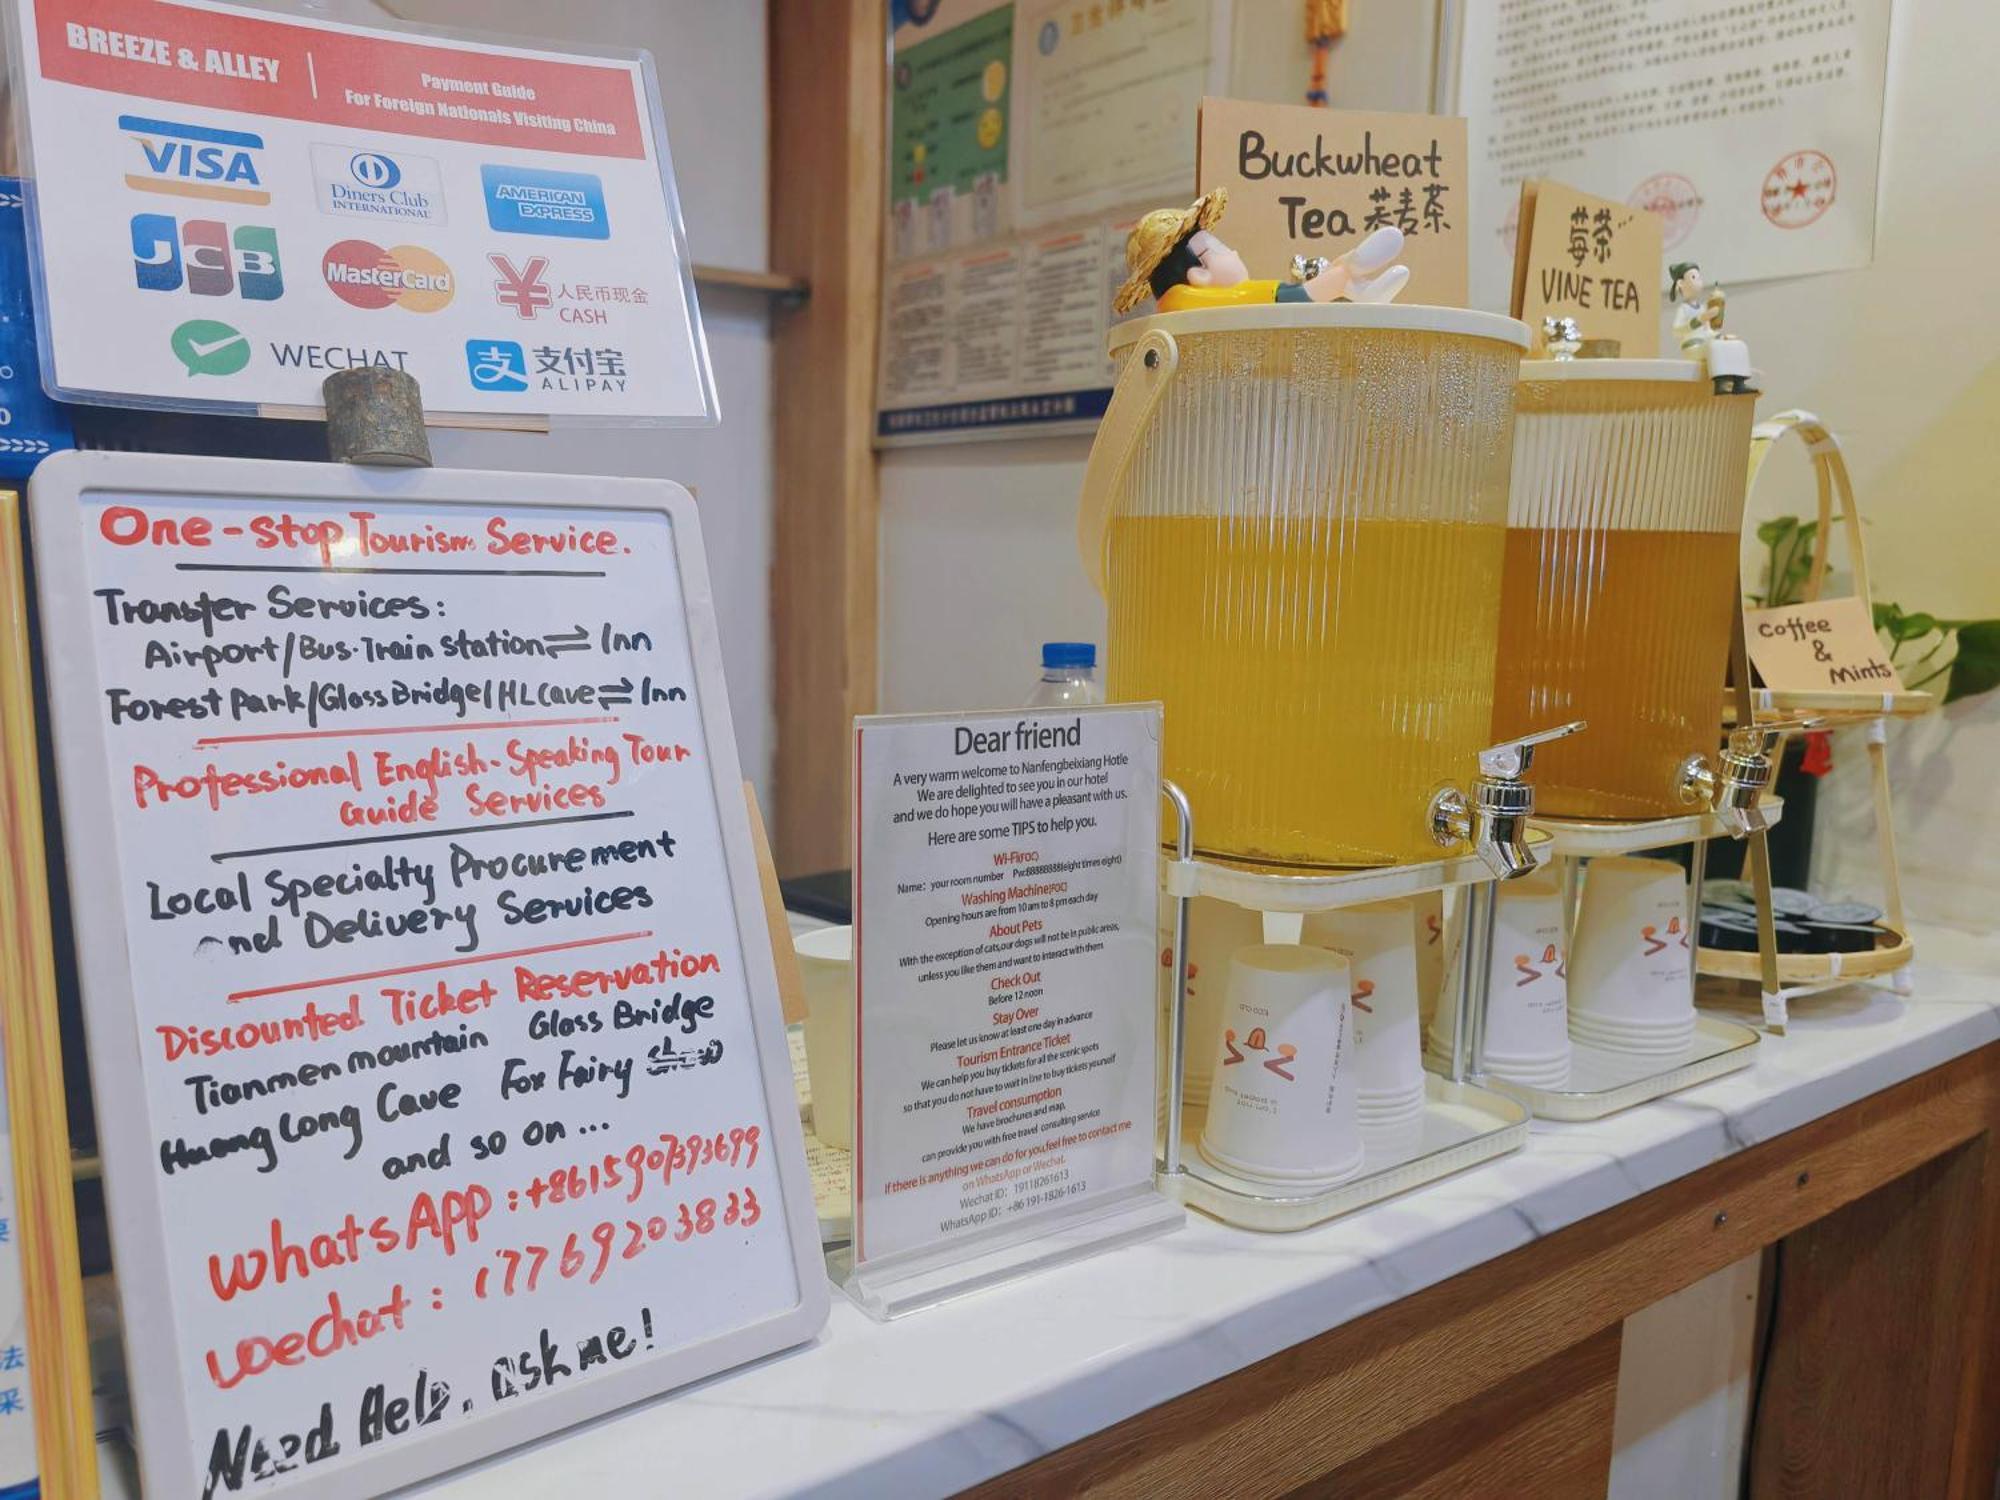 BREEZE & ALLEY
Payment Guide
For Foreign Nationals Visiting China
VISA
Diners Club
INTERNATIONAL
AMERICAN
EXPRESS
JCB
MasterCard
人民币现金
CASH
WECHAT
支付宝
ALIPAY
One-Stop Tourism Service.
Transfer Services:
Airport/Bus·Train station⇌Inn
Forest Park/Glass Bridge/HLCave⇌Inn
Professional English-Speaking Tour
Guide Services
Local Specialty Procurement
and Delivery Services
Discounted Ticket Reservation
Tianmen mountain Glass Bridge
Huang Long Cave Fox Fairy show
and so on...
WhatsApp:+8615907393699
wechat: 17769203833
Need Help, ask me!
Dear friend
A very warm welcome to Nanfengbeixiang Hotle
We are delighted to see you in our hotel
and we do hope you will have a pleasant with us.
Here are some TIPS to help you.
Wi-Fi(FOC)
Name: your room number Pw:88888888(eight times eight)
Washing Machine(FOC)
Opening hours are from 10 am to 8 pm each day
About Pets
With the exception of cats,our dogs will not be in public areas,
unless you like them and want to interact with them
Check Out
Before 12 noon
Stay Over
Please let us know at least one day in advance
Tourism Entrance Ticket
We can help you buy tickets for all the scenic spots
so that you do not have to wait in line to buy tickets yourself
Travel consumption
We have brochures and map,
can provide you with free travel consulting service
If there is anything we can do for you,feel free to contact me
on WhatsApp or Wechat.
Wechat ID: 19118261613
WhatsApp ID: +86 191-1826-1613
Buckwheat
Tea 荞麦茶
莓茶
VINE TEA
Coffee
&
Mints
法
采